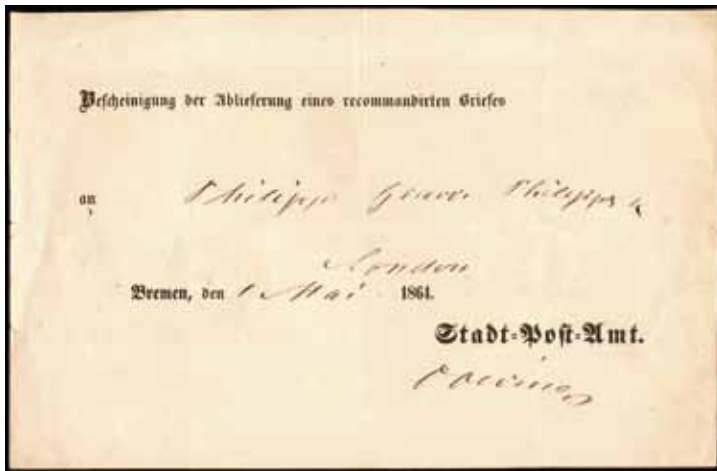 Bescheinigung der Ablieferung eines recommandirten Briefes
an Philipp Graves Philipps
London
Bremen, den 1 Mai 1861.
Stadt=Post=Amt.